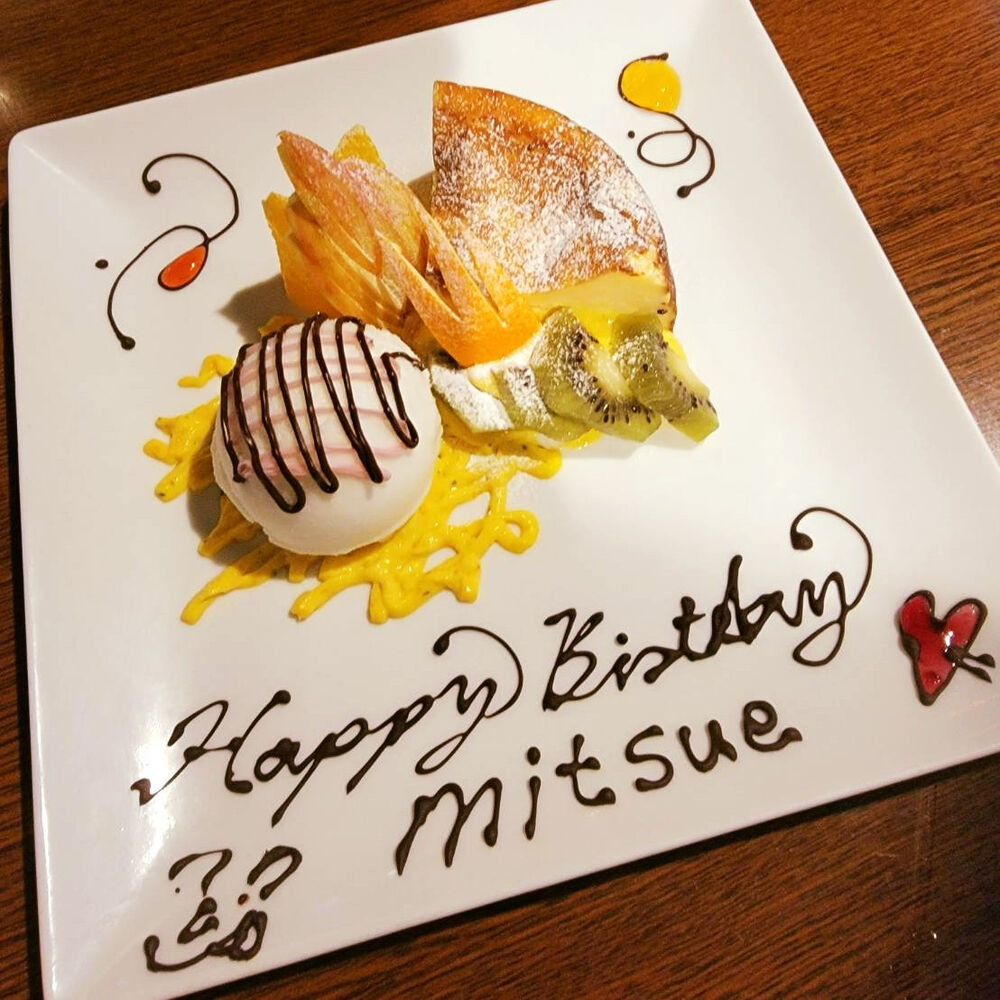 Happy Birthday
mitsue